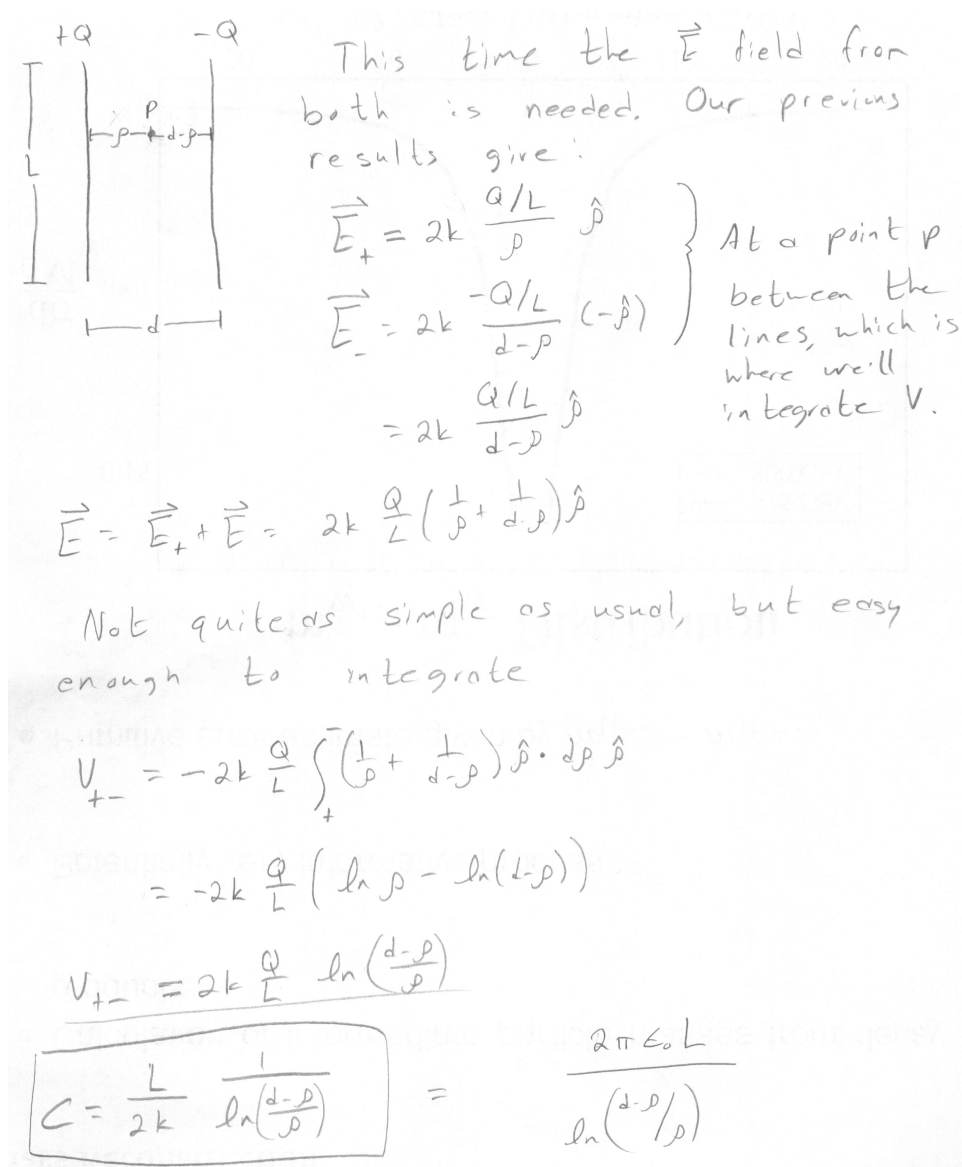 +Q -Q
P
ρ d-ρ
L
d
This time the E⃗ field from
both is needed. Our previous
results give:
E⃗₊ = 2k (Q/L)/ρ ρ̂
E⃗₋ = 2k (-Q/L)/(d-ρ) (-ρ̂)
= 2k (Q/L)/(d-ρ) ρ̂
At a point p
between the
lines, which is
where we'll
integrate V.
E⃗ = E⃗₊ + E⃗ = 2k Q/L (1/ρ + 1/(d-ρ)) ρ̂
Not quite as simple as usual, but easy
enough to integrate
V₊₋ = -2k Q/L ∫₊⁻ (1/ρ + 1/(d-ρ)) ρ̂ · dρ ρ̂
= -2k Q/L (ln ρ - ln(d-ρ))
V₊₋ = 2k Q/L ln((d-ρ)/ρ)
C = L/2k 1/ln((d-ρ)/ρ) = 2πε₀L/ln(d-ρ/ρ)